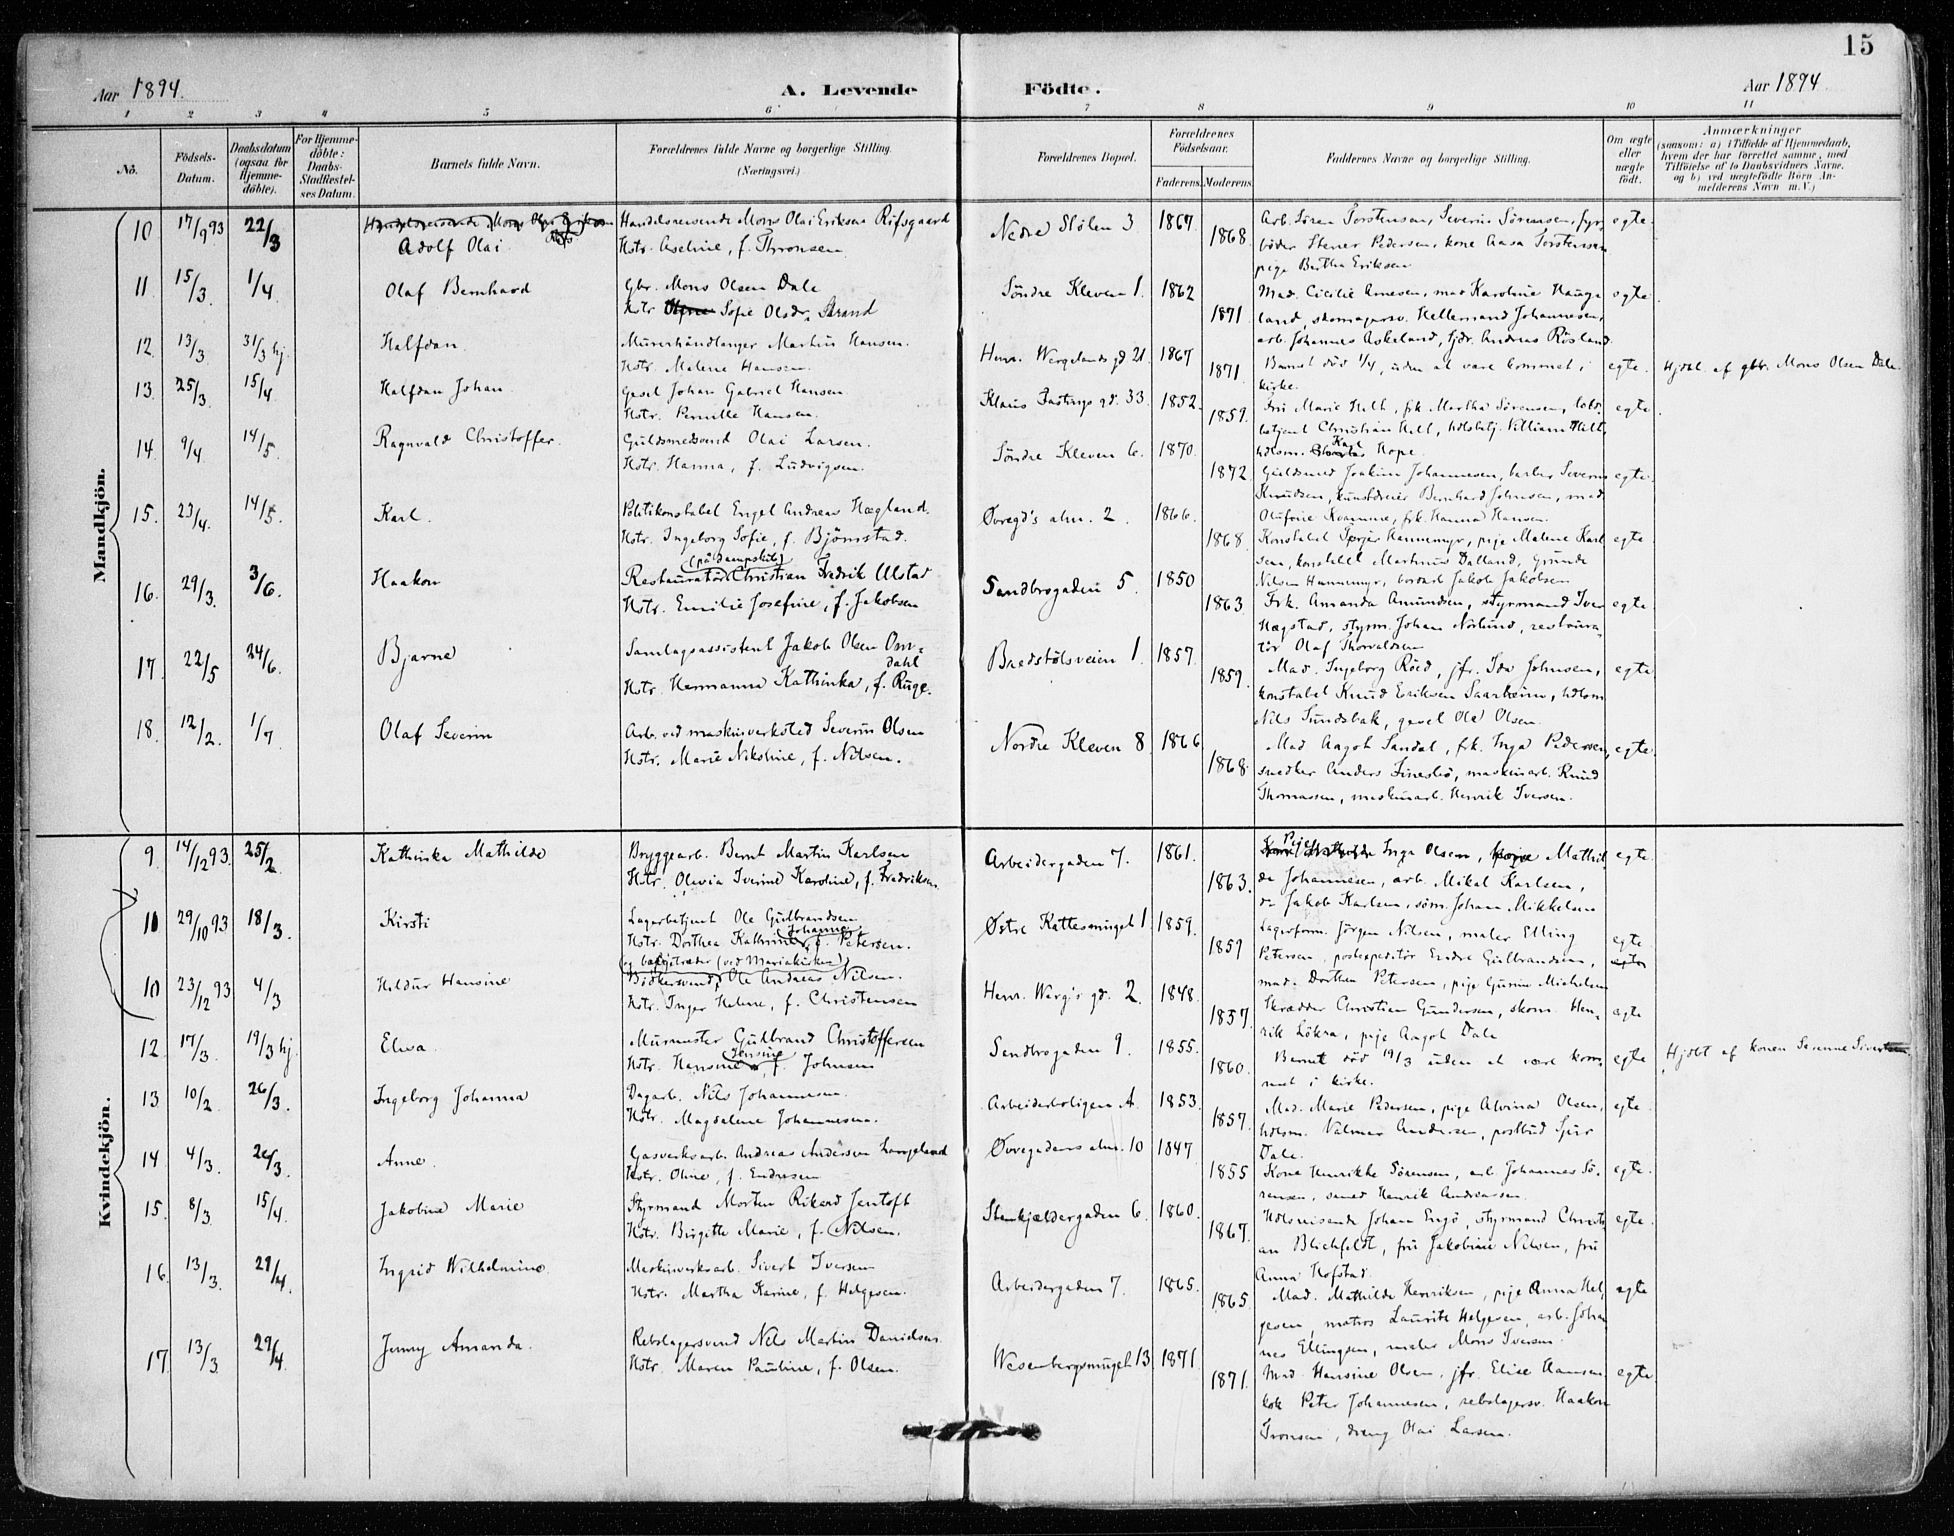 15
Aar 1894.
A. Levende Födte.
Aar 1894
1 2 3 4 5 6 7 8 9 10 11
No.
Födsels-Datum.
Daabsdatum (ogsaa for Hjemme-döbte).
For Hjemme-döbte: Daabs-Stadfæstel-ses Datum.
Barnets fulde Navn.
Forældrenes fulde Navne og borgerlige Stilling.
(Næringsvei.)
Forældrenes Bopæl.
Forældrenes Födselsaar.
Faderens Moderens
Faddernes Navne og borgerlige Stilling.
Om ægte eller uægte födt.
Anmærkninger
(saasom: a) i Tilfælde af Hjemmedaab, hvem der har forrettet samme, med Tilföielse af to Daabsvidners Navne, og b) ved uægtefödte Börn An-melderens Navn m. V.)
Mandkjön.
10 17/9 93 22/3
Adolf Olai
Handelsreisende Mons Olai Eriksen Röfsgaard
Hstr. Aseline, f. Thronsen
Nedre Stölen 3 1867. 1868.
Arb. Sören Torstensen, Severin Sörensen, fyr-
böder Stener Pedersen, kone Aasa Torstensen
pige Bertha Eriksen
egte.
11 15/3. 1/4.
Olaf Bernhard
Gbr. Mons Olsen Dale
Hstr. Sofie Olsdr. Strand
Söndre Kleven 1. 1862 1871
Mad. Cicilie Arnesen, mad Karoline Hauge
land, skomagersv. Hellemand Johannesen,
arb. Johannes Askeland, tjdr. Andreas Rösland.
egte.
12. 13/3 31/3 hj.
Halfdan.
Murerhåndlanger Martin Hansen.
Hstr. Malene Hansen.
Henr. Wergelands gd 21. 1867 1871.
Barnet död 1/4, uden at være kommet i
kirke.
egte.
Hjdbt. af gbr. Mons Olsen Dale.
13. 25/3. 15/4
Halfdan Johan.
Gesel Johan Gabriel Hansen
Hstr. Pernille Hansen.
Klaus Fastings gd. 33. 1852. 1859.
Fru Marie Helt, frk Martha Sörensen, told-
betjent Christian Helt, hdlsbetj. William Helt,
hdlsm. Karl Hope.
egte
14. 9/4 14/5.
Ragnvald Christoffer.
Guldsmedsvend Olai Larsen.
Hstr. Hanna, f. Ludvigsen.
Söndre Kleven 6. 1870. 1872.
Guldsmed Joakim Johannesen, barber Severin
Knudsen, kunstdreier Bernhard Johnsen, mad
Olufine Kvamme, frk. Hanna Hansen.
egte.
15. 23/4. 14/5.
Karl.
Politikonstabel Engel Andreas Hægland.
Hstr. Ingeborg Sofie, f. Björnstad.
Øvregd's alm. 2. 1866. 1868.
Konstabel Hannemyr, pige Malene Karl
sen, konstabel Martinus Dalland,
Nilsen Hannemyr, Jakob Jakobsen
egte.
16. 29/3. 3/6.
Haakon
(på dampskib)
Restauratør Christian Fredrik Ulstad
Hstr. Emilie Josefine, f. Jakobsen
Sandbrogaden 5. 1850 1863
Frk. Amanda Amundsen, styrmand Iver
Hægstad, styrm. Johan Näslund, restaura-
tör Olaf Thorvaldsen
egte.
17 22/5 24/6.
Bjarne
Samlagsassistent Jakob Olsen Om-
dahl
Hstr. Hermanna Kathinka, f. Ruge.
Bredstølsveien 1. 1857. 1859.
Mad. Ingeborg Röed, jfr. Ida Johnsen,
konstabel Knud Eriksen Saarheim, hdlsm
Nils Sundsbak, gesel Ole Olsen.
egte.
18. 12/2. 1/7.
Olaf Severin
Arb. ved maskinverksted Severin Olsen
Hstr. Marie Nikoline, f. Nilsen.
Nordre Kleven 8 1866 1868.
Mad Aagot Sandal, frk. Inga Pedersen,
snedker Anders Finesbö, maskinarb. Knud
Thomassen, maskinarb. Henrik Iversen.
egte.
Kvindekjön.
9. 14/12 93. 25/2
Kathinka Mathilde
Bryggearb. Bernt Martin Karlsen
Hstr. Olevia Iverine Karoline, f. Fredriksen.
Arbeidergaden 7. 1861. 1863.
Pige Inga Olsen, Mathil
de Johannesen, arb. Mikal Karlsen,
do Jakob Karlsen, söm. Johan Mikkelsen
egte.
11 29/10 93 18/3.
Kirsti
Lagerbetjent Ole Gulbrandsen
Hstr. Dorthea Kathrine Johanne, f. Petersen.
Østre Kattesmuget 1 1859. 1859
Lagerform. Jörgen Nilsen, maler Elling
Petersen, postexpeditör Endre Gulbrandsen,
mad. Dorthea Petersen, pige Gurine Michelsen
egte
10 23/12 93 4/3
Hildur Hansine
og bælgetræder (ved Mariakirken)
Bödkersvend, Ole Andreas Nilsen.
Hstr. Inger Helene, f. Christensen
Henr. Werg's gd. 2. 1848. 1857.
Skrædder Christian Gundersen, skom. Hen-
rik Lökra, pige Aagot Dale
egte
12 17/3. 19/3 hj.
Elisa.
Murmester Gulbrand Christoffersen
Hstr. Hansine Jensine, f. Johnsen
Sandbrogaden 9. 1855. 1860.
Barnet död 19/3 uden at være kom-
met i kirke.
egte
Hjdbt af konen Severine Sivertsen.
13 10/2. 26/3.
Ingeborg Johanna
Dagarb. Nils Johannesen.
Hstr. Magdalene Johannesen.
Arbeiderboligen A. 1853. 1857.
Mad. Marie Pedersen, pige Alvina Olsen,
hdlsm. Valmar Andersen, postbud Sjur
Dale.
egte.
14 4/3. 26/3.
Anne.
Gasverksarb. Andreas Andersen Langeland
Hstr. Oline, f. Endresen
Øvregadens alm. 10 1847 1855
Kone Henrikke Sörensen, arb. Johannes Sö-
rensen, smed Henrik Andreassen.
egte.
15. 8/3. 15/4.
Jakobine Marie
Styrmand Morten Rikard Jentoft
Hstr. Birgitte Marie, f. Nilsen.
Stenkjeldergaden 6. 1860. 1867.
Hdlsreisende Johan Engö, styrmand Christi
an Blichfeldt, fru Jakobine Nilsen, fru
Anna Hofstad.
egte.
16. 13/3. 29/4.
Ingrid Wilhelmine.
Maskinverksarb. Sivert Iversen
Hstr. Martha Karine, f. Helgesen.
Arbeidergaden 7. 1865. 1865.
Mad. Mathilde Henriksen, pige Anna Hel-
gesen, matros Laurits Helgesen, arb. Johan
nes Ellingsen, maler Mons Iversen.
egte
17. 13/3 29/4.
Jenny Amanda.
Rebslagersvend Nils Martin Danielsen
Hstr. Maren Pauline, f. Olsen.
Wesenbergsmuget 13 1871. 1871.
Mad. Hansine Olsen, jfr. Elise Hansen
kok Peter Johannesen, rebslagersv. Haakon
Tronsen, dreng Olai Larsen.
egte.